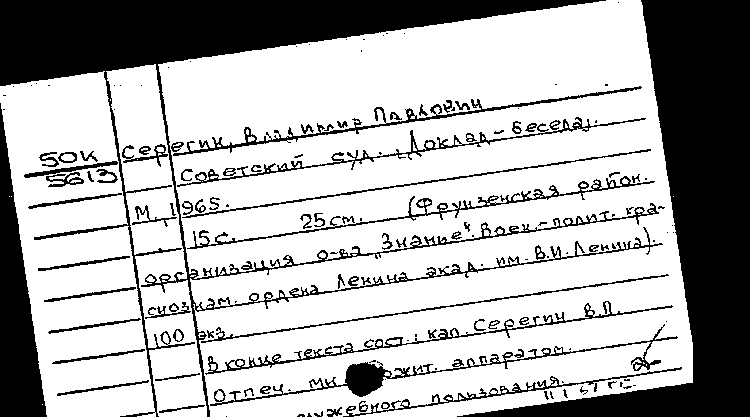 Серегин, Владимир Павлович
50К
5613
Советский суд. (Доклад-беседа).
М., 1965.
15с. 25см. (Фрунзенская район.
организация о-ва „Знание“. Воен.-полит. кра-
снознам. ордена Ленина акад. им. В.И. Ленина).
100 экз.
В конце текста сост.: кап. Серегин В.П.
Отпеч. мн аппаратом.
служебного пользования.